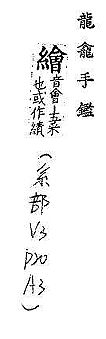 龍龕手鑑
繪音會五采也或作繢（糸部V3 P20 A3）